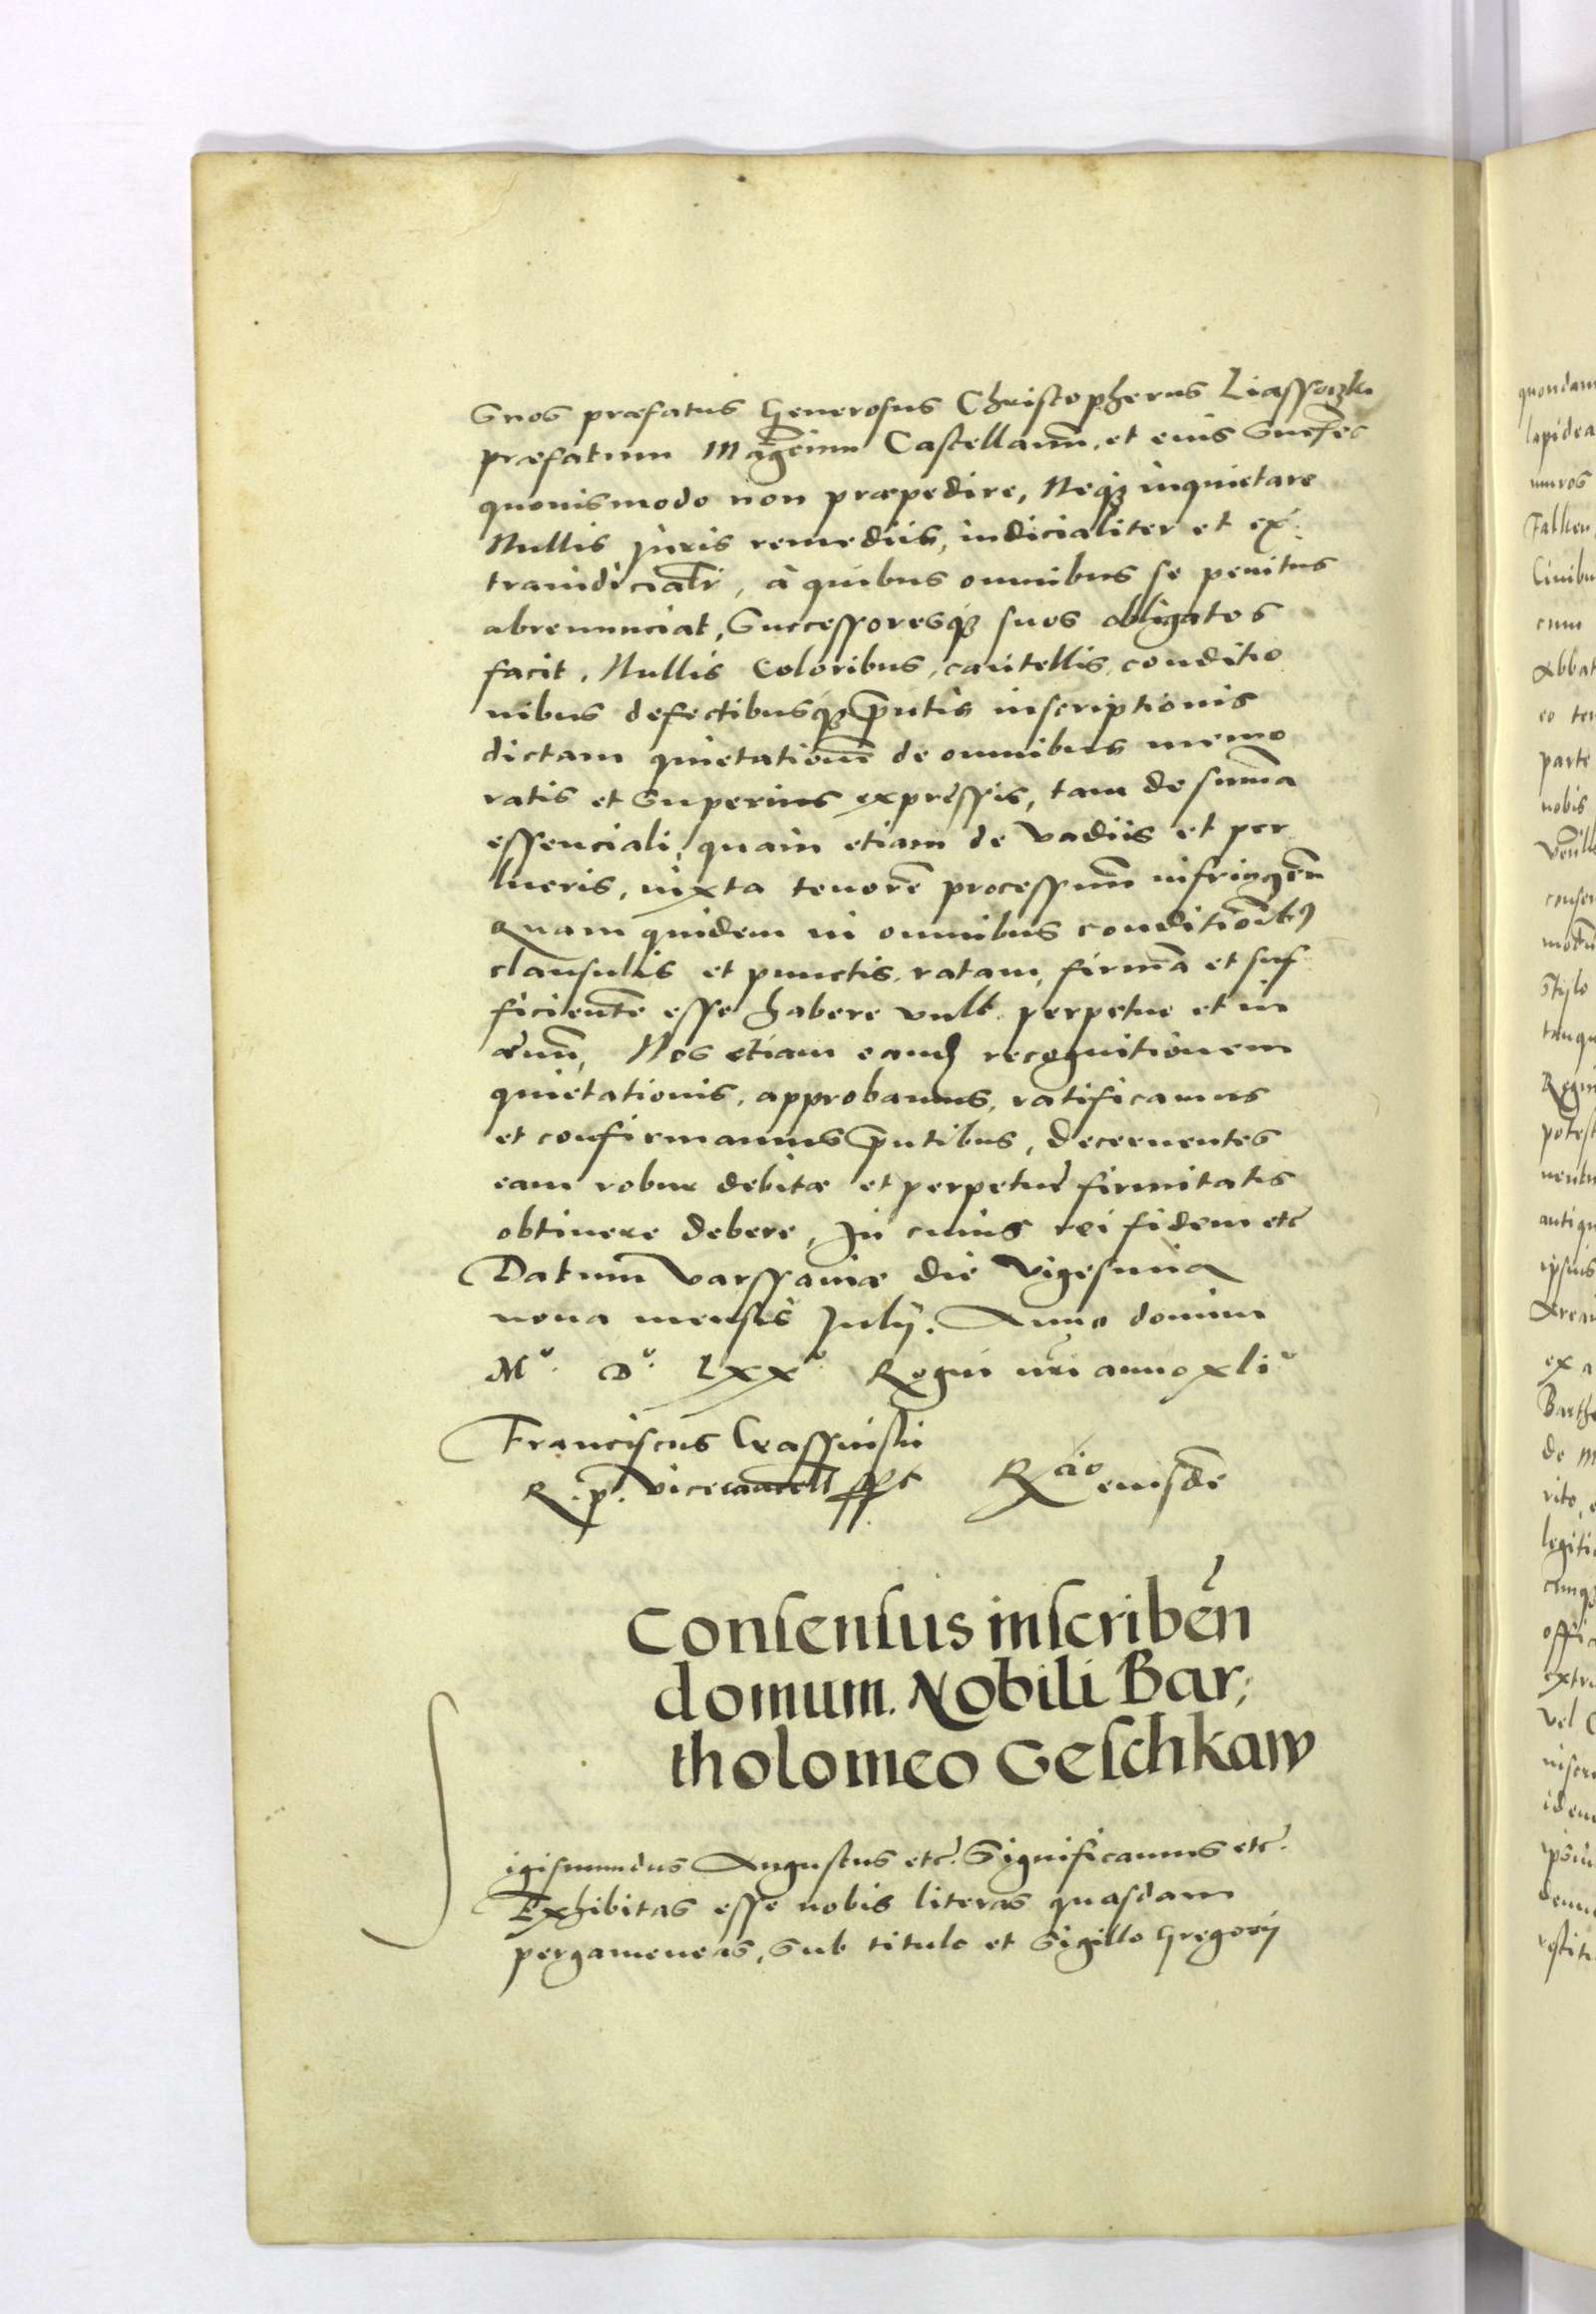 Suos præfatus Generosus Christopherus Liassowzki
præfatum Mag̃cum Castellanũ, et eius Successˢ
quouismodo non præpedire, Neqȝ inquietare
Nullis Juris remediis, iudicialiter et ex:
traiudicialr̃, à quibus omnibus se penitus
abrenunciat, Successoresqȝ suos obligatos
facit, Nullis Coloribus, cautellis, conditio
nibus defectibusqȝ p̃ntis inscriptionis
dictam quietationẽ de omnibus memo
ratis et Superius expressis, tam de sum̃a
essenciali, quam etiam de vadiis et per
lucris, iuxta tenorẽ processuũ
Quam quidem in omnibus conditioĩbꝰ
clausulis et punctis, ratam, firmã et suf
ficientẽ esse habere vult perpetue et in
æuũ, Nos etiam eandꝫ recognitionem
quietationis, approbamus, ratificamus
et confirmamus p̃ntibus, decernentes
eam robur debitæ et perpetuæ firmitatis
obtinere debere, In cuius rei fidem etc̃
Datum Varssauiæ die Vigesima
nona mensis Julij. Anno domini
Mᵒ. Dᵒ. Lxxᵒ Regni nr̃i anno xliᵒ
Franciscus Crassinski
R. p. Vicecancell sspt Rᵃᵗⁱᵒ eiusdẽ
Consensus inscribeñ
domum. Nobili Bar;
tholomeo Geschkaw
S
igismundus Augustus etc̃. Significamus etc̃.
Exhibitas esse nobis literas quasdam
pergameneas, Sub titulo et Sigillo Gregorij
quondam
lapidea
muros
Falken
Ciuibu
cum
Abbat
eo ten
parte
nobis
Stylo
tanqu
Regni
potest
antiqu
ipsius
Area
ex a
Barth
de m
rito, e
legiti
offi
extra
Vel
idem
ipsiu